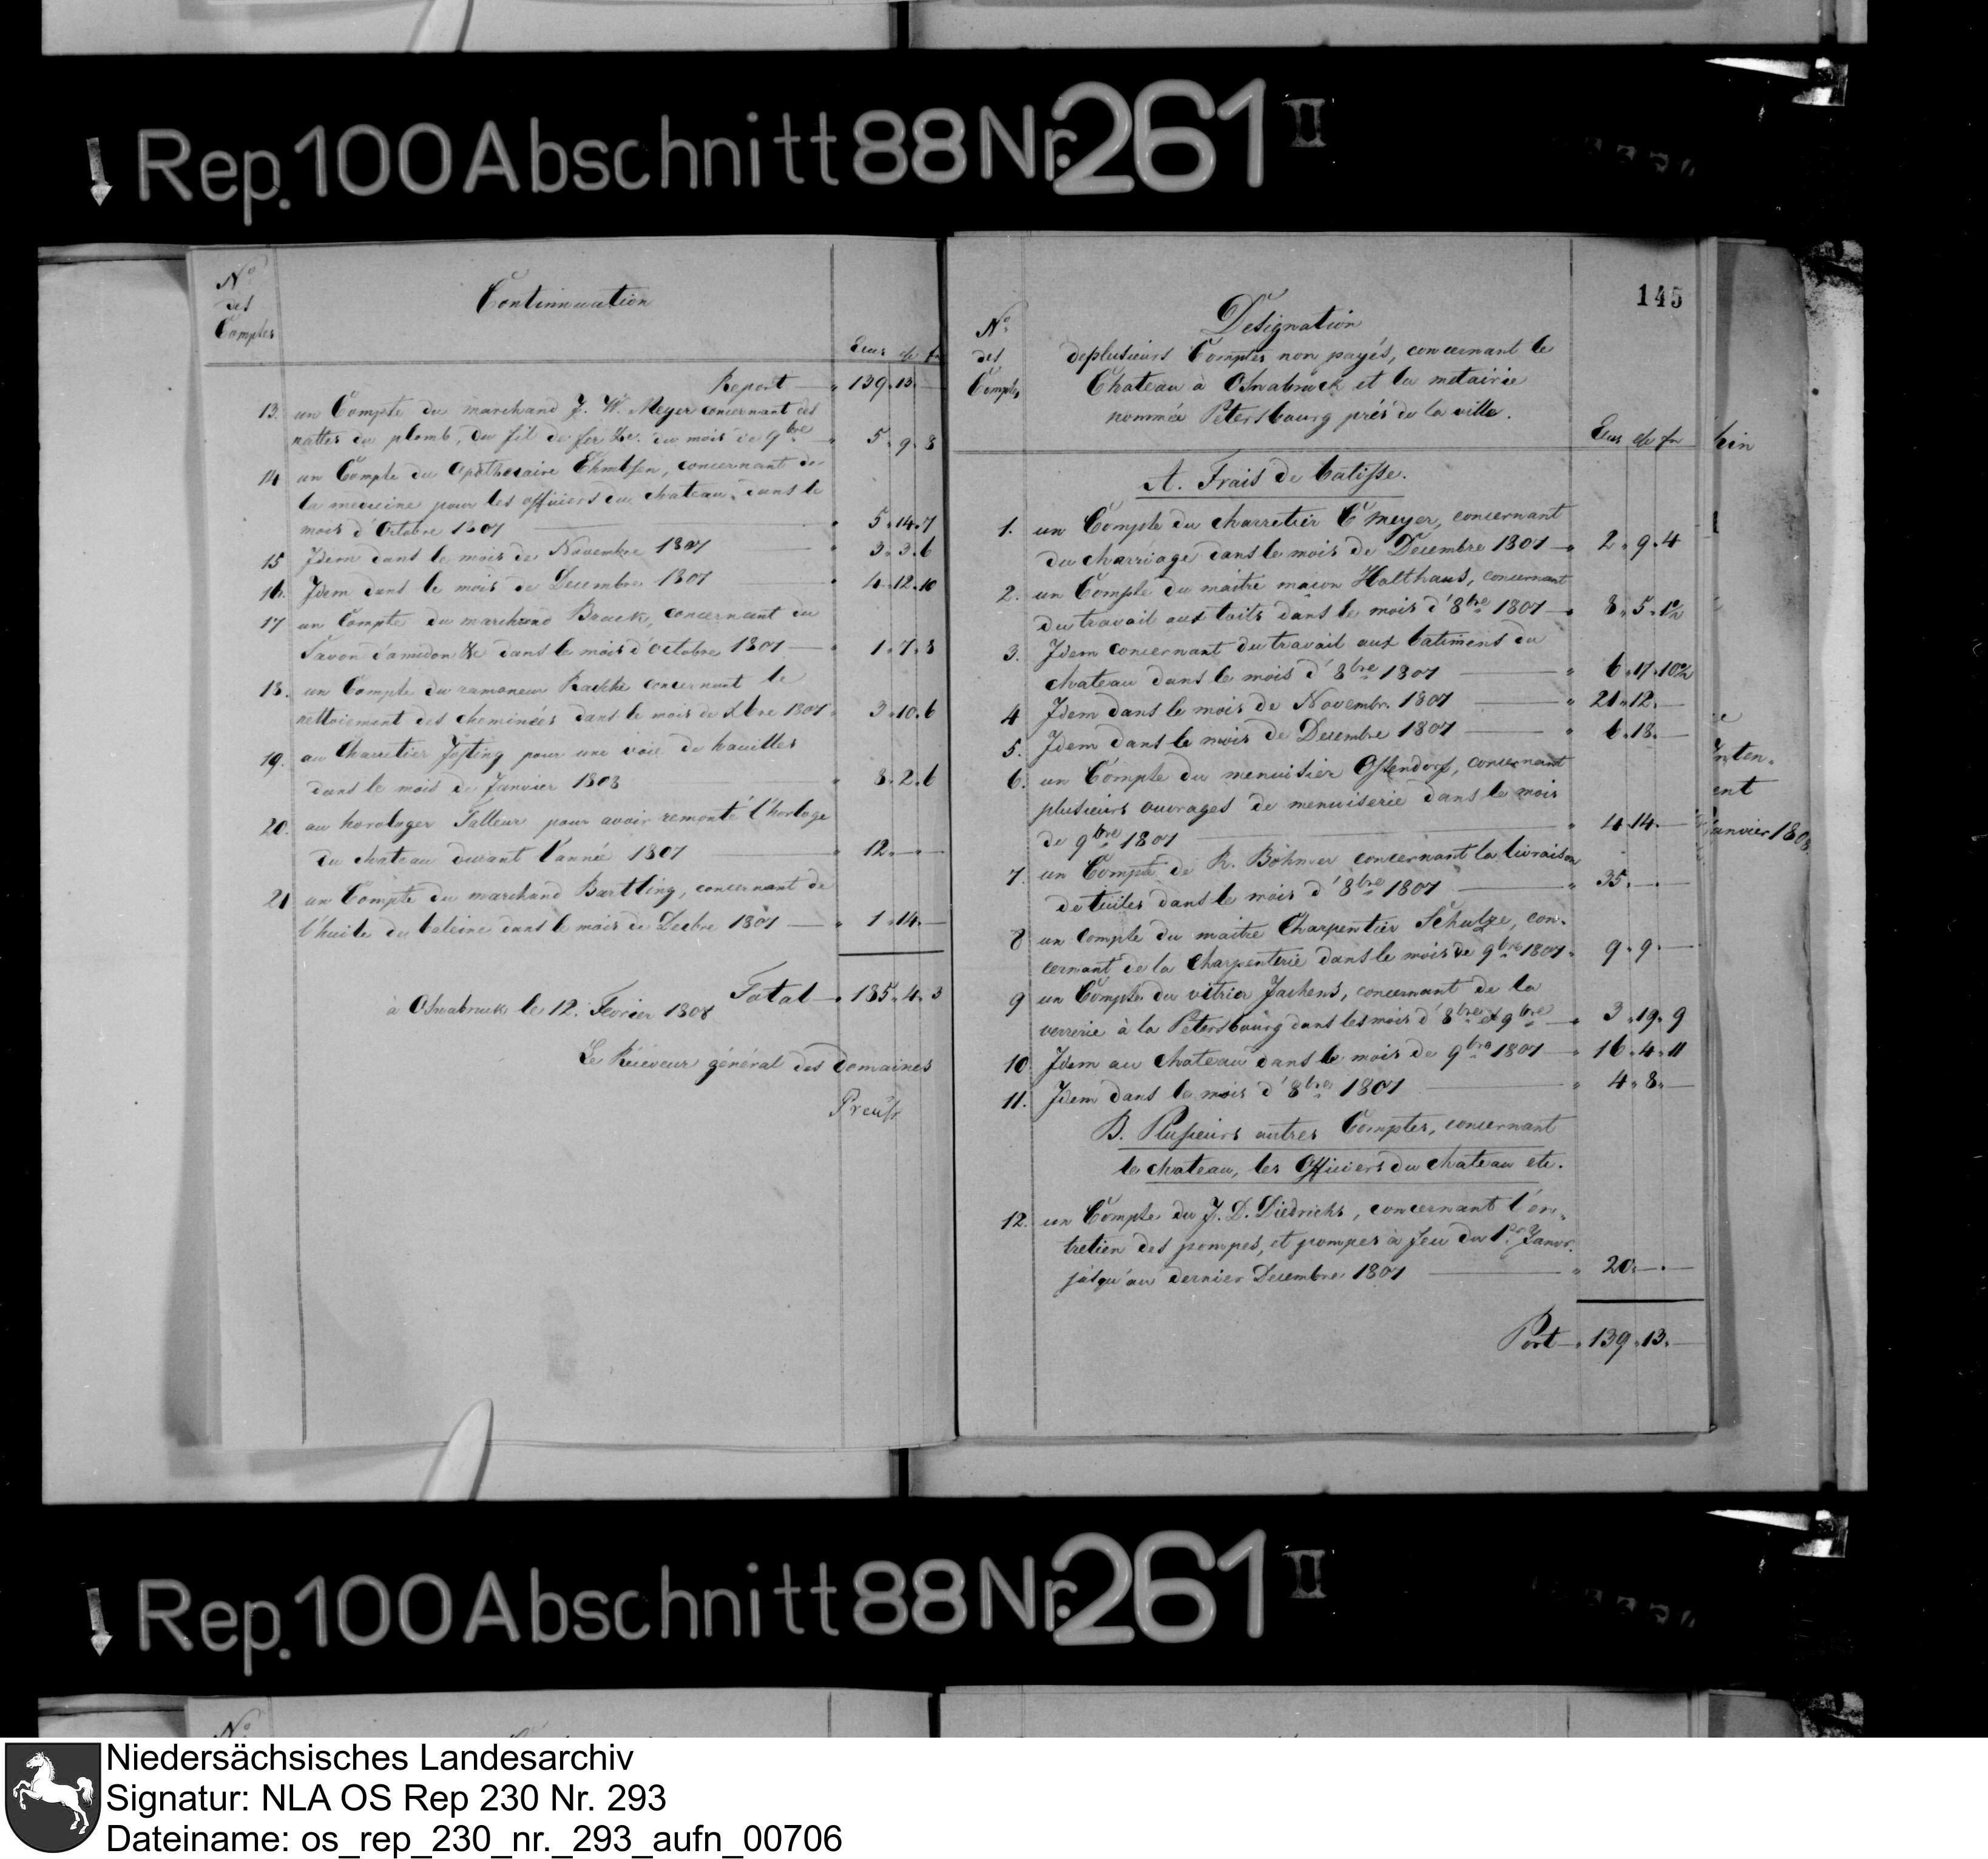 Rep. 100 Abschnitt 88 Nr. 261 II
No
des
Comptes
Continuation
Ecus
Report 139. 13. —
13. un Compte du marchand J. W. Meyer concernant des
nattes du plomb, du fil de fer &c. du mois de 9bre 5. 9. 8
14 un Compte du Apothecaire Ehmbsen, concernant de
la medecine pour les officiers du chateau, dans le
mois d'Octobre 1807 5. 14. 7
15 Idem dans le mois de Novembre 1807 3. 3. 6
16. Idem dans le mois de Decembre 1807 4. 12. 10
17 un Compte du marchand Brack, concernant du
Savon d'amidon &c dans le mois d'Octobre 1807 1. 7. 8
18. un Compte du ramoneur concernant le
nettoiement des cheminées dans le mois de Xbre 1807 3. 10. 6
19. au Charretier Josting pour une voie de houilles
dans le mois de Janvier 1808 8. 2. 6
20. au horologer Talleur pour avoir remonté l'horloge
du chateau durant l'année 1807 12. — . —
21 un Compte du marchand Bartling, concernant de
l'huile du baleine dans le mois de Decbre 1807 1. 14. —
Total 185. 4. 3
à Osnabruck le 12. Fevrier 1808
Le Réceveur général des domaines
Preuß
145
No
des
Comptes
Designation
deplusieurs Comptes non payés, concernant le
Chateau à Osnabruck et la metairie
nommée Petersbourg près de la ville.
Ecus
A. Frais de batisse.
1. un Compte du charretier C Meyer, concernant
du charriage dans le mois de Decembre 1807 2. 9. 4
2. un Compte du maitre maçon Holthaus, concernant
du travail aux toits dans le mois d'8bre 1807 8. 5. 1½
3. Idem concernant du travail aux batiments du
chateau dans le mois d'8bre 1807 6. 17. 10½
4 Idem dans le mois de Novembr. 1807 21. 12. —
5. Idem dans le mois de Decembre 1807 6. 18. —
6. un Compte du menuisier Ossendorf, concernant
plusieurs ouvrages de menuiserie dans le mois
de 9bre 1807 4. 14. —
7. un Compte de R. Böhmer concernant la livraison
de tuiles dans le mois d'8bre 1807 35. — . —
8 un Compte du maitre Charpentier Schulze, con-
cernant de la Charpenterie dans le mois de 9bre 1807. 9. 9. —
9 un Compte du vitrier Jachens, concernant de la
verrerie à la Petersbourg dans les mois d'8bre et 9bre 3. 19. 9
10 Idem au chateau dans le mois de 9bre 1807 16. 4. 11
11. Idem dans le mois d'8bre 1807 4. 8. —
B. Plusieurs autres Comptes, concernant
le chateau, les Officiers du chateau etc.
12. un Compte du J. D. Diedrichs, concernant l'en-
tretien des pompes, et pompes à feu du 1er Janvr.
jusqu'au dernier Decembre 1807 20. — . —
Port 139. 13. —
ent
Janvier 1808.
Rep. 100 Abschnitt 88 Nr. 261 II
No
Niedersächsisches Landesarchiv
Signatur: NLA OS Rep 230 Nr. 293
Dateiname: os_rep_230_nr._293_aufn_00706